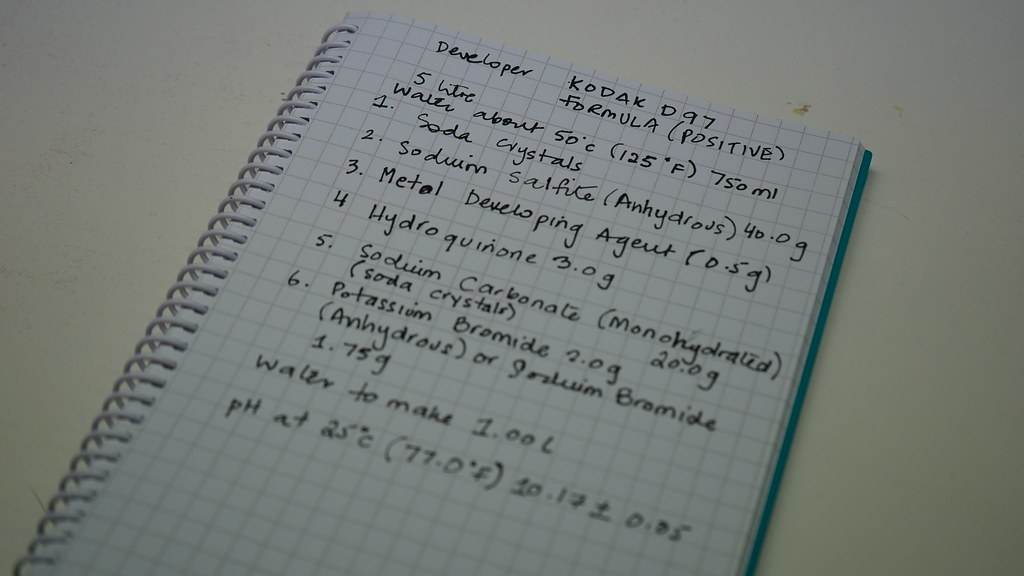 Developer KODAK D97
5 litre FORMULA (POSITIVE)
Water about 50°c (125°F) 750ml
1. Soda crystals
2. Sodium Salfite (Anhydrous) 40.0g
3. Metol Developing Agent (0.5g)
4 Hydroquinone 3.0g
5. Sodium Carbonate (Monohydrated)
(soda crystals) 20.0g
6. Potassium Bromide 2.0g
(Anhydrous) or Sodium Bromide
1.75g
Water to make 1.00L
pH at 25°c (77.0°F) 10.17 ± 0.05